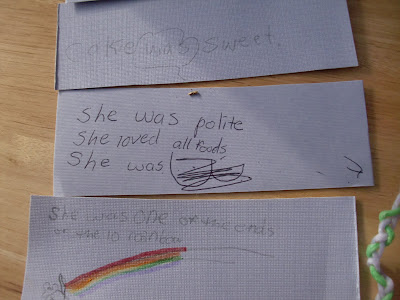 cake was sweet.
she was polite
She loved all foods
She was
She was one of the ends
of the 10 rainbow